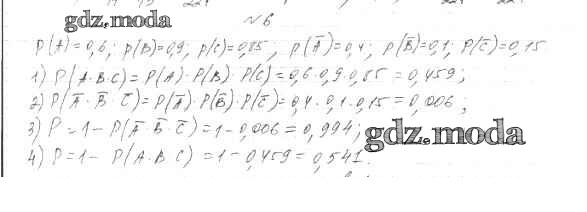 №6
gdz.moda
P(A)=0,6; P(B)=0,9; P(C)=0,85; P(A̅)=0,4; P(B̅)=0,1; P(C̅)=0,15
1) P(A·B·C)=P(A)·P(B)·P(C)=0,6·0,9·0,85=0,459;
2) P(A̅·B̅·C̅)=P(A̅)·P(B̅)·P(C̅)=0,4·0,1·0,15=0,006;
3) P=1-P(A̅·B̅·C̅)=1-0,006=0,994;
gdz.moda
4) P=1-P(A·B·C)=1-0,459=0,541.